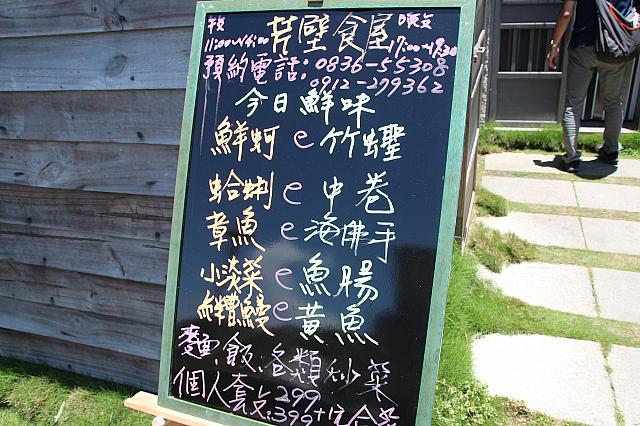 午 芹壁食屋 晚
11:00~14:00 17:00~19:30
預約電話:0836-55308
0912-279362
今日鮮味
鮮蚵 e 竹蟶
蛤蜊 e 中卷
章魚 e 海佛手
小淡菜 e 魚腸
糟鰻 e 黃魚
麵、飯、各類炒菜
個人套 299
399+1元 合菜